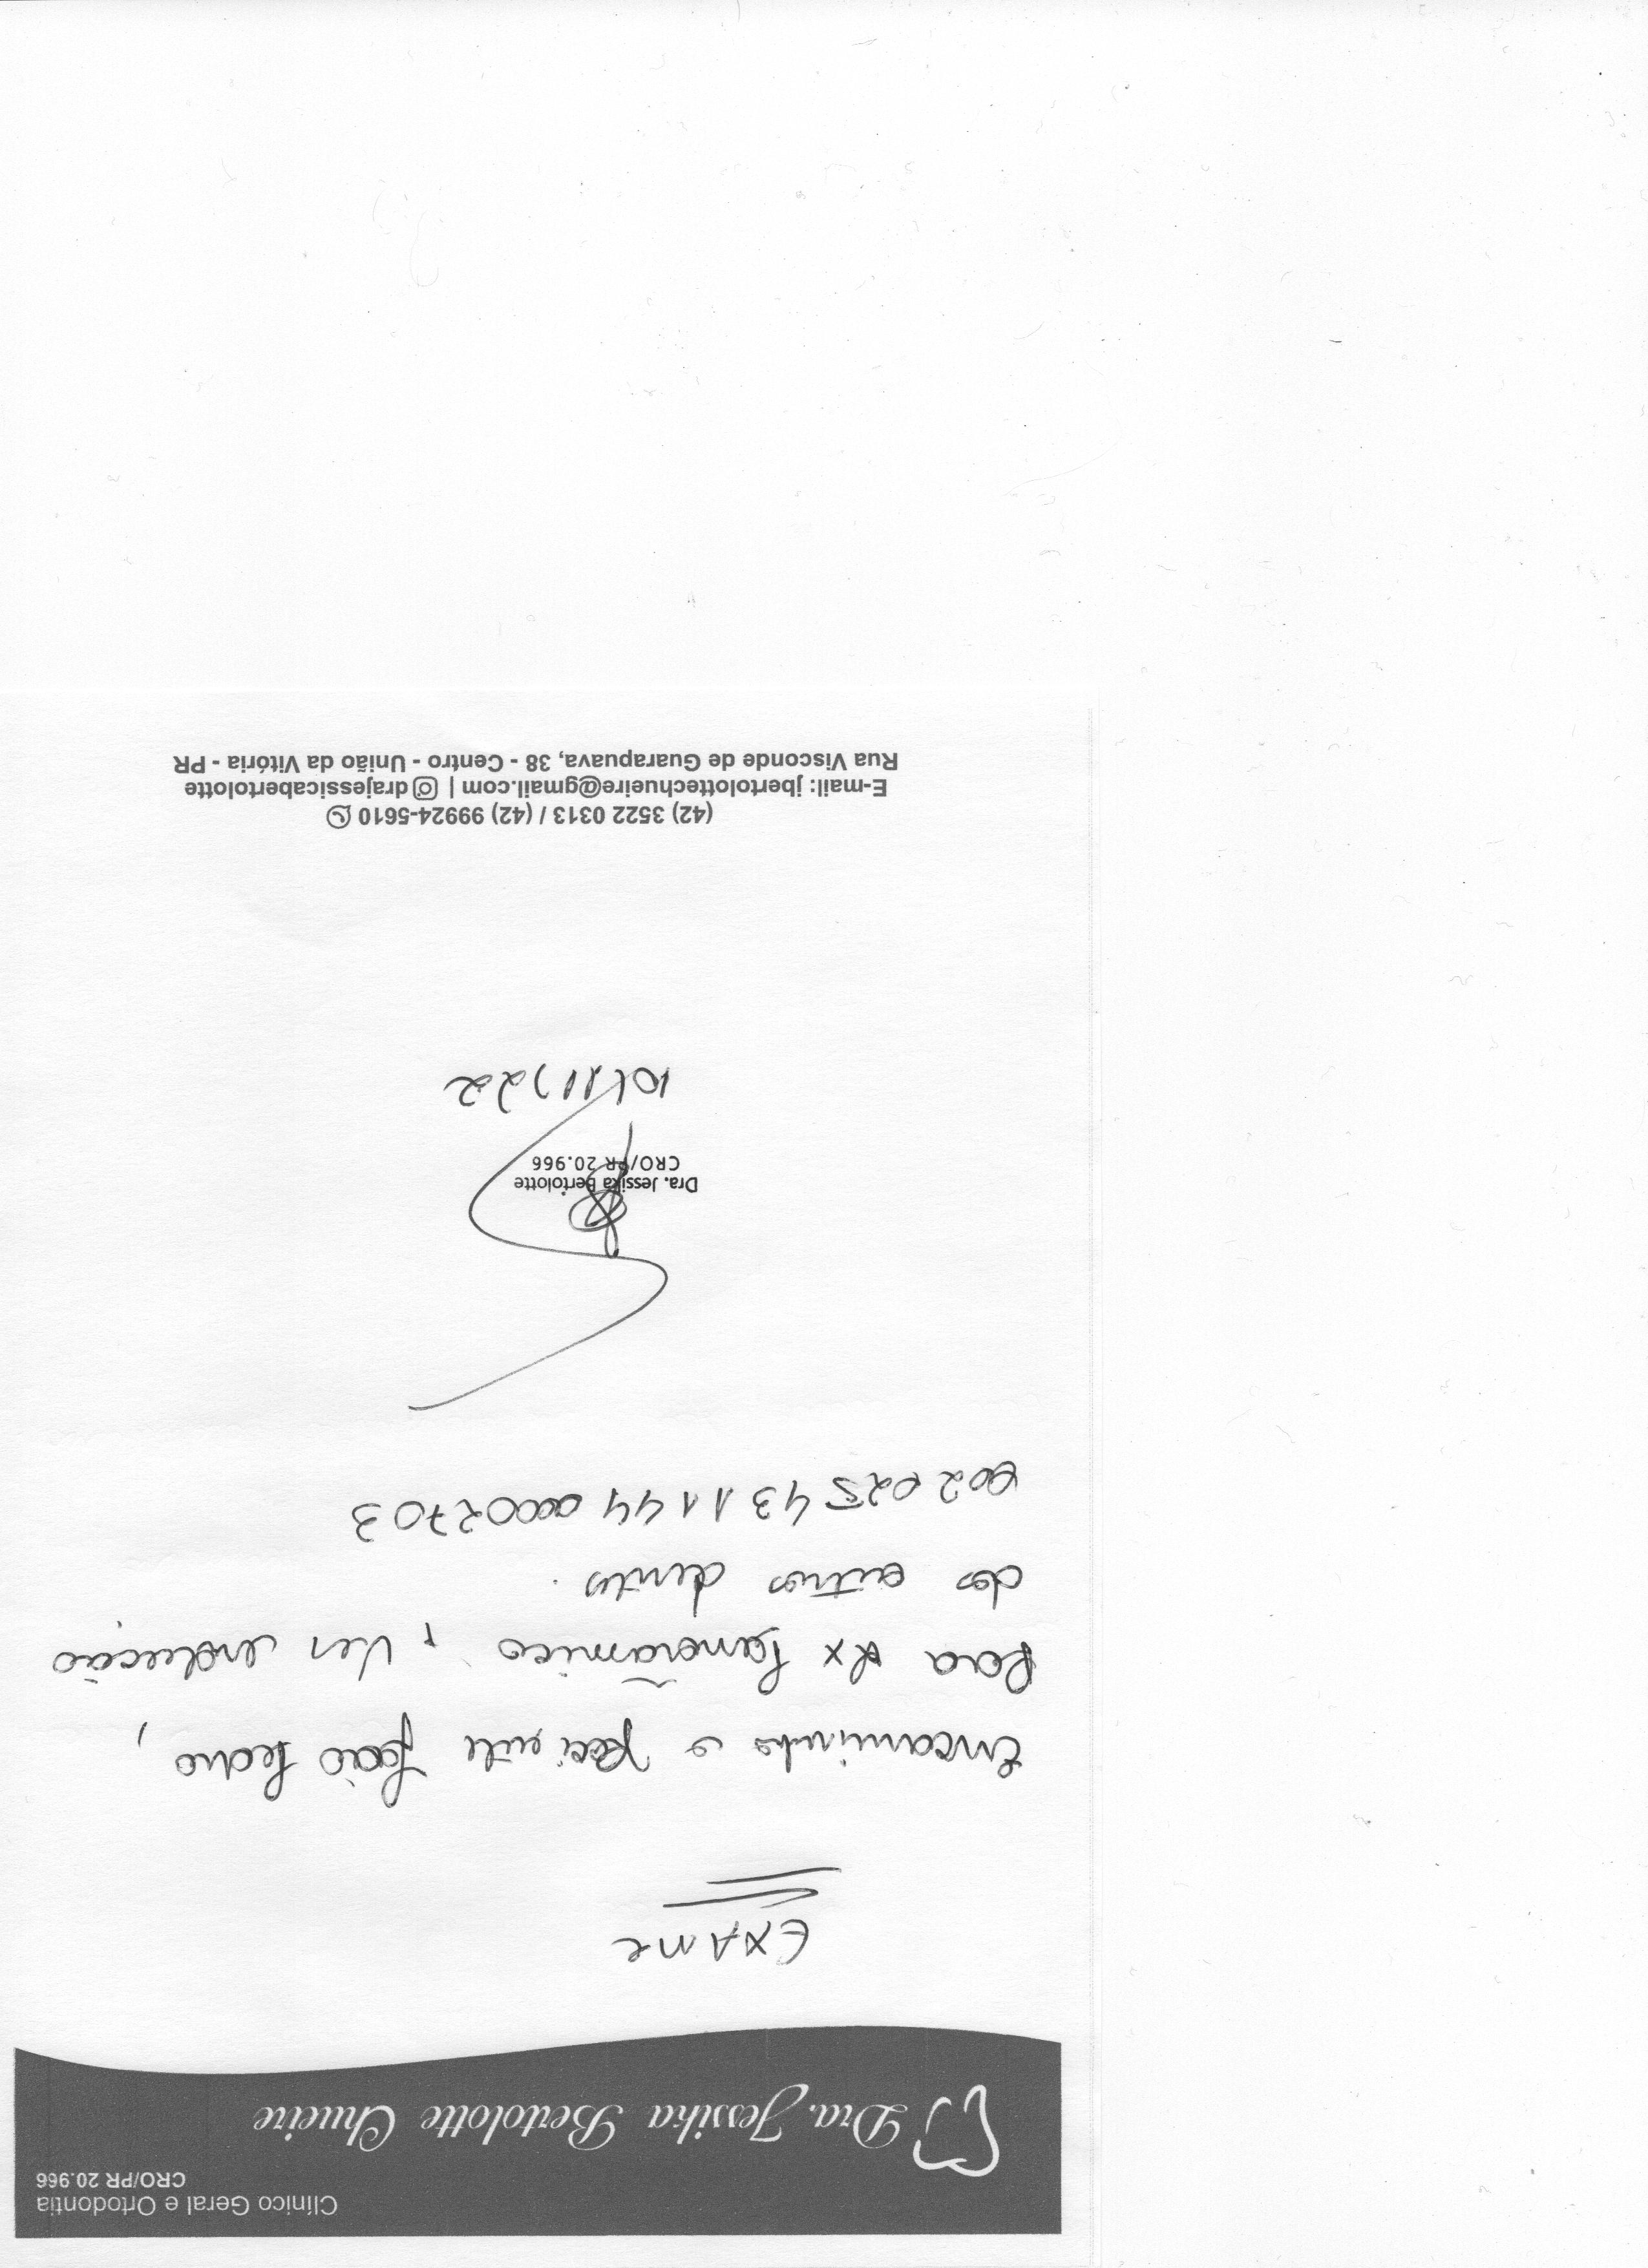 Clínico Geral e Ortodontia
CRO/PR 20.966
Dra. Jessika Bertolotte Chueire
EXAME
Encaminho o paciente João Pedro,
Para Rx Panorâmico, p/ ver evolução
dos outros dentes.
002 025 431144 00002703
Dra. Jessika Bertolotte
CRO/PR 20.966
10/11/22
(42) 3522 0313 / (42) 99924-5610
E-mail: jbertolottechueire@gmail.com | drajessicabertolotte
Rua Visconde de Guarapuava, 38 - Centro - União da Vitória - PR